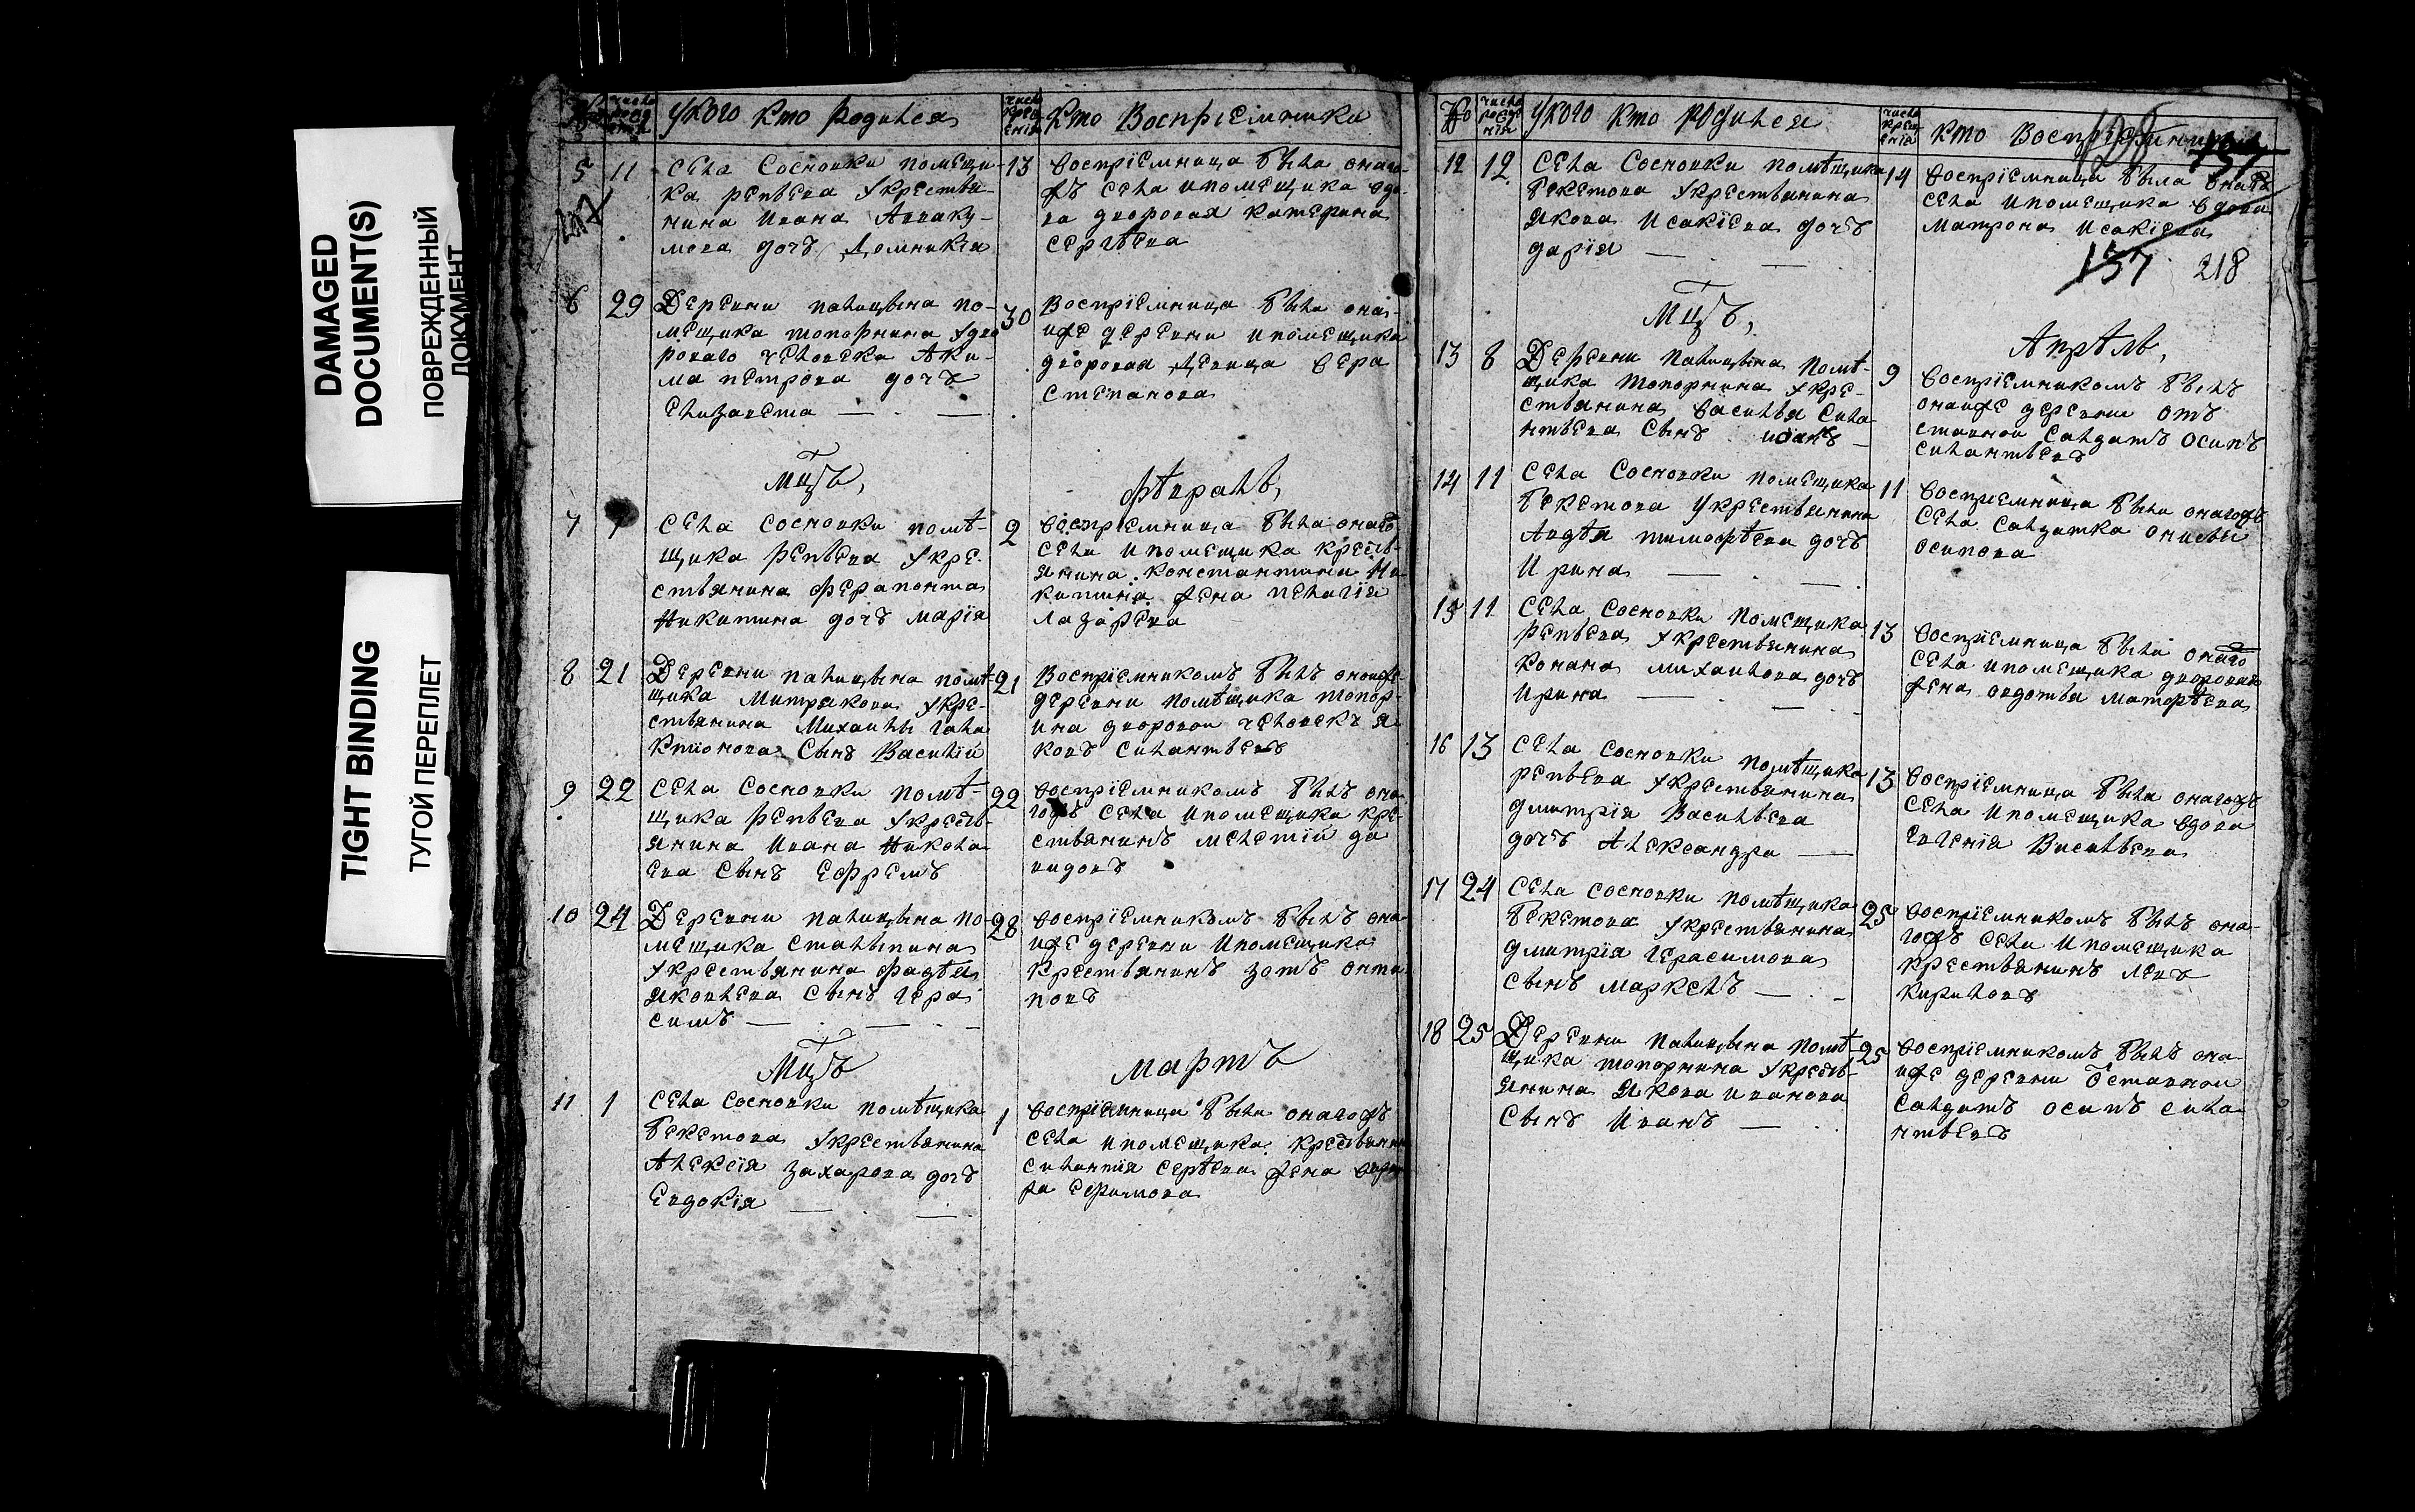 DAMAGED
DOCUMENT(S)
ПОВРЕЖДЕННЫЙ
ДОКУМЕНТ
TIGHT BINDING
ТУГОЙ ПЕРЕПЛЕТ
№ число рожденія Укого Кто Родился число крещенія Кто Воспріемники
5 11 Села Сосновки помещи-
ка Репьева Укрестья-
нина Ивана Аввакумо-
мова дочь Домникія
13 воспріемница была онаго-
жъ села ипомещика вдо-
ва дворовая Катерина
Сергѣева
6 29 Деревни Палицына по-
мещика Топорнина Удво
роваго человека Аки-
ма Петрова дочь
Елизавета
30 Воспріемница была оной-
же деревни ипомещика
дворовая девица Вера
Степанова
Мцъ, Февраль,
7 1 Села Сосновки помѣ-
щика Репьева Укре-
стьянина Ферапонта
Никитина дочь Марія
2 воспріемница была онаго
села ипомещика кресть-
янина Константина Ни-
китина жена Пелагія
Лазарева
8 21 Деревни Палицына помѣ-
щика Митракова Укре-
стьянина Михаилы Гала
ктіонова Сынъ Василій
21 Воспріемникомъ былъ онойже
деревни помѣщика Топор-
ина дворовой человекъ Я
ковъ Силантьевъ
9 22 Села Сосновки помѣ-
щика Репьева Укресть-
янина Ивана Никола
ева Сынъ Ефремъ
22 воспріемникомъ былъ она
гожъ села ипомещика кре-
стьянинъ Мелетій Да
видовъ
10 24 Деревни Палицына по-
мещика Сталыпина
Укрестьянина Фадѣя
Яковлева Сынъ Гера
симъ
28 воспріемникомъ былъ оно-
йже деревни ипомещика
крестьянинъ Зотъ Анти
повъ
Мцъ Мартъ
11 1 Села Сосновки помѣщика
Бекетова Укрестьянина
Алексія Захарова дочь
Евдокія
1 воспріемница была онагожъ
села ипомещика крестьянина
Силантія Сергѣева жена Варва
ра Ефимова
№ число рожденія Укого Кто Родился число крещенія Кто Воспріемники
128 137
12 12 Села Сосновки помѣщика
Бекетова Укрестьянина
Якова Исакіева дочь
Дарія
14 воспріемница была онагожъ
села ипомещика вдова
Матрона Исакіева
137 218
Мцъ, Апрѣль,
13 8 Деревни Палицына помѣ-
щика Топорнина Укре-
стьянина Василья Сила-
нтьева Сынъ Иоанъ
9 воспріемникомъ былъ
онойже деревни от
ставной Салдатъ Осипъ
Силантьевъ
14 11 Села Сосновки помещика
Бекетова Укрестьянина
Авдѣя Тимофѣева дочь
Ирина
11 воспріемница была онагожъ
села Салдатка
Осипова
15 11 Села Сосновки помещика
Репьева Укрестьянина
Конана Михаилова дочь
Ирина
13 воспріемница была онаго
села ипомещика двороваго
жена Авдотья Матвѣева
16 13 Села Сосновки помѣщика
Репьева Укрестьянина
Дмитрія Васильева
дочь Александра
13 воспріемница была онагожъ
села ипомещика вдова
Евгенія Васильева
17 24 Села Сосновки помѣщика
Бекетова Укрестьянина
Дмитрія Герасимова
Сынъ Маркелъ
25 воспріемникомъ былъ она-
гожъ села ипомещика
крестьянинъ Левъ
Кириловъ
18 25 Деревни Палицына помѣ-
щика Топорнина Укресть-
янина Якова Иванова
Сынъ Иванъ
25 воспріемникомъ былъ оно-
йже деревни Оставной
Салдатъ Осипъ Сила-
нтьевъ